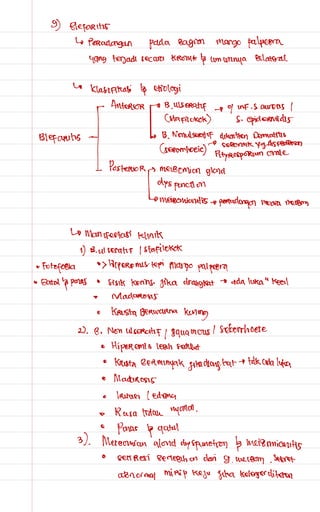 9) Blefaritis
↳ Peradangan pada bagian margo palpebra
yang terjadi secara kronik & umumnya bilateral
↳ klasifikasi & etiologi
Blefaritis
Anterior → B. Ulseratif → o/ inf. S. aureus /
(stafilokok) S. epidermidis
→ B. Nonulseratif dikaitkan Dermatitis
(seborrhoeic) → seboroik yg
Pityrosporum ovale
Posterior → meibomian gland
dysfunction
→ meibomianitis → peradangan
↳ Manifestasi klinik
1) B. ulseratif / stafilokok
• Fotofobia • > Hiperemis tepi margo palpebra
• Gatal & panas • Sisik kering, jika diangkat → ada luka" kecil
• Madarosis
• Krusta berwarna kuning
2). B. Non ulseratif / squamous / seborrhoeic
• Hiperemis lebih sedikit
• Krusta berminyak, jika diangkat → tdk ada luka
• Madarosis
• Iritasi / edema
• Rasa tidak nyaman.
• Panas & gatal
3). Meibomian gland dysfunction & meibomianitis
• sekresi berlebihan dari g. meibom, sekret
abnormal mirip keju jika